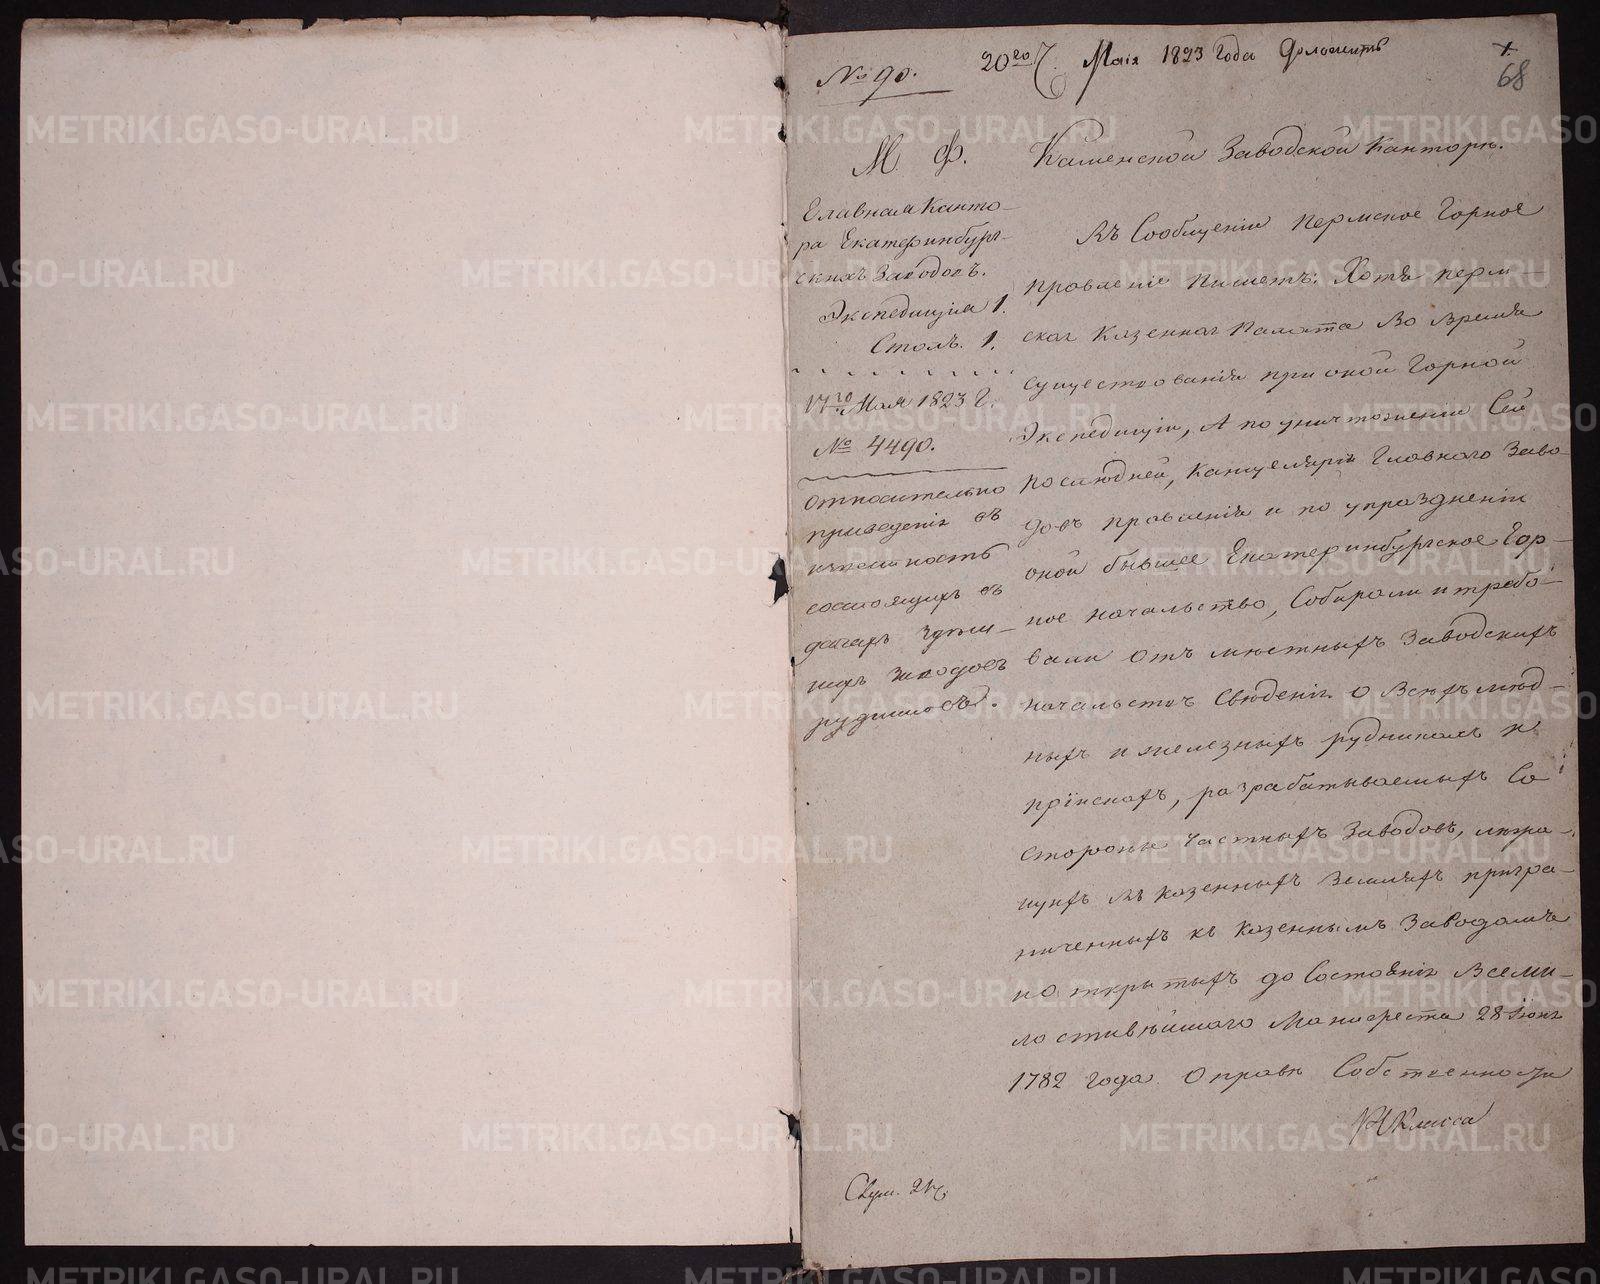 № 90.
20го Маія 1823 Года Доложить
1.
68
М. Ф.
Каменской Заводской Канторѣ.
Главная Канто-
ра Екатеринбург-
скихъ Заводовъ.
Экспедиція 1.
Столъ. 1.
17го Мая 1823 Г.
№ 4490.
относительно
приведенія въ
извѣстность
состоящихъ въ
дачахъ здѣш-
нихъ заводовъ
рудниковъ.
Въ Сообщеніи Пермское Горное
Правленіе Пишетъ: Хотя перм-
ская Казенная Палата Во время
существованія при оной Горной
Экспедиціи, А по уничтоженіи Сей
послѣдней, Канцелярія Главнаго Заво-
довъ правленія и по упраздненіи
оной бывшее Екатеринбургское Гор-
ное начальство, Собирали и требо-
вали отъ мѣстныхъ Заводскихъ
начальствъ Свѣденія о Всѣхъ мѣд-
ныхъ и железныхъ рудникахъ и
пріискахъ, разрабатываемыхъ Со
стороны Частныхъ Заводовъ,
Въ казенныхъ Земляхъ пригра-
ниченныхъ къ Казеннымъ Заводамъ
и открытыхъ до Состоянія Всеми-
лостивѣйшаго Манифеста 28 Іюня
1782 года О правѣ Собственности
Класса